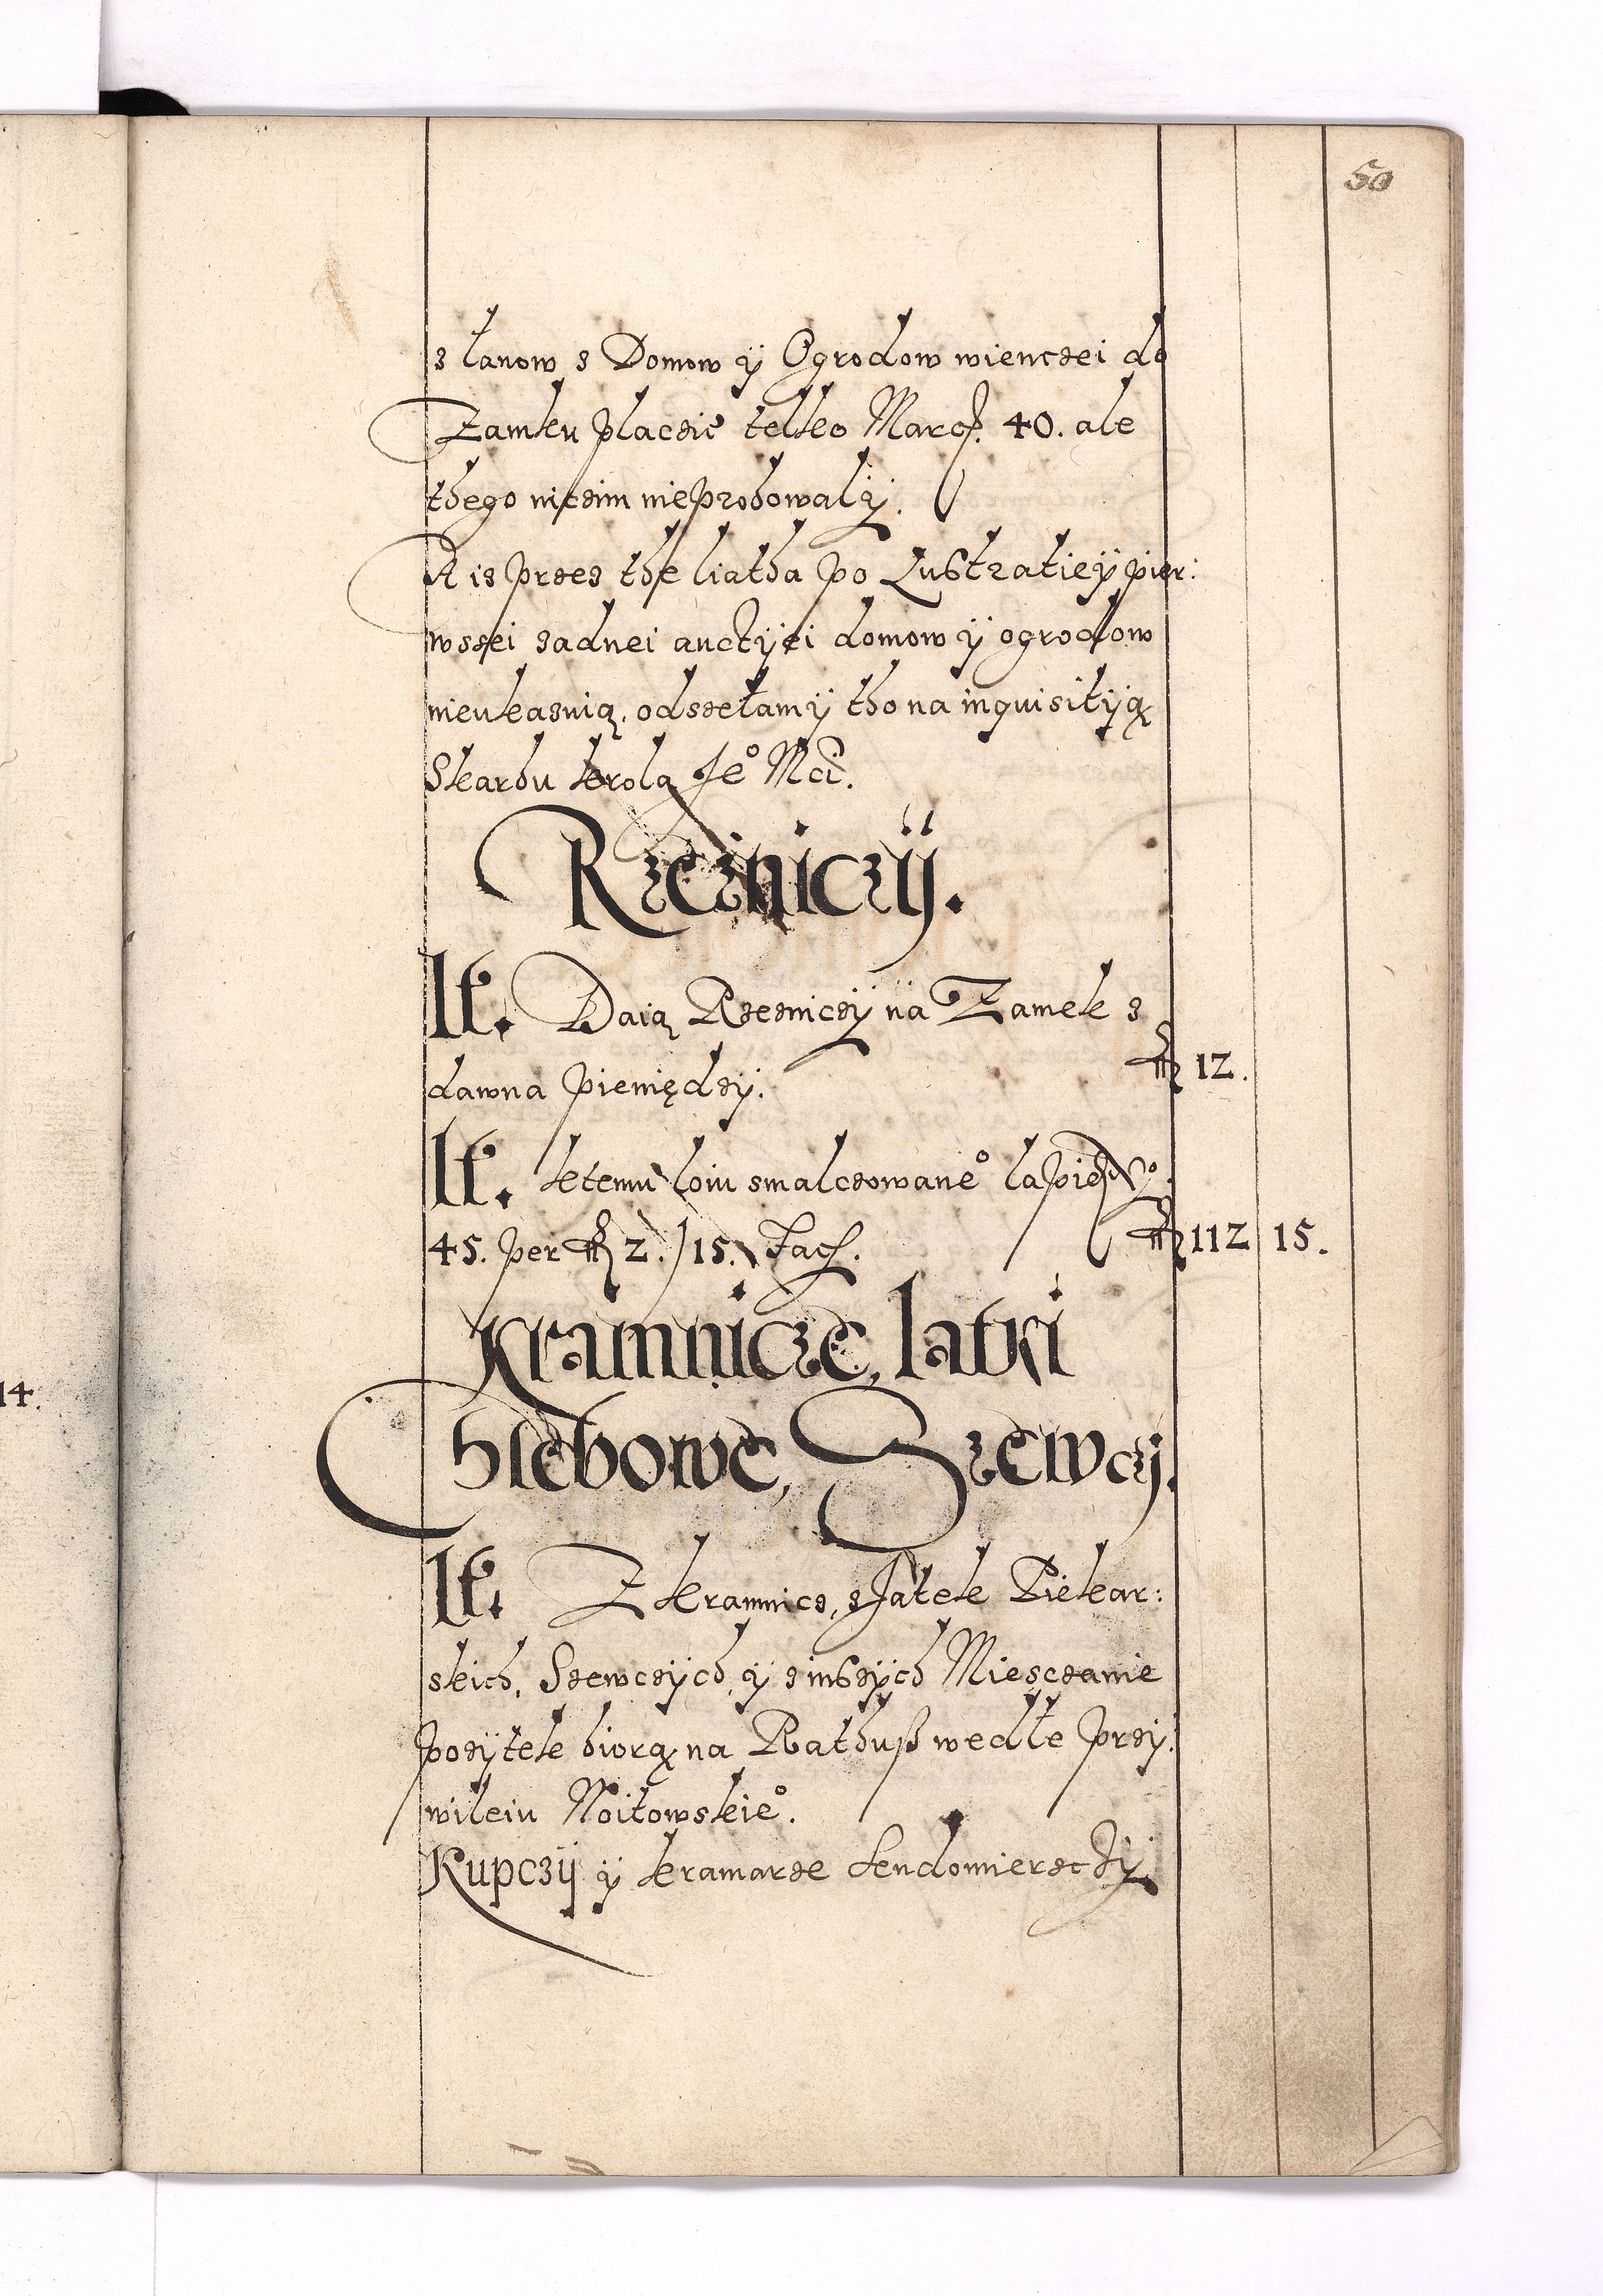 50
z łanow z Domow ÿ Ogrodow wienczei do
Zamku płaczic telko Marcz. 40. ale
thego niczim nieprobowalÿ.
A iz przez the liatha po Lustratieÿ pier:
wszei zadnei auctÿei domow ÿ ogrodow
nieukazuią, odszełamÿ tho na inquisitÿą
Skarbu krola Je° Mci.
Rzezniczÿ.
It. Daią Rzezniczÿ na Zamek z
dawna pieniędzÿ. fl 12.
It. ktemu loiu smalczowane°
45. per fl 2. / 15. fac. fl 112 15.
Kramnicze, Iatki
Chlebowe, Szewcÿ.
It. Z kramnicz, z Jatek Piekar:
skich, Szewczÿch, ÿ z inszÿch Miesczanie
pozÿtek biorą na Rathuß wedle przÿ:
wileiu Woitowskie°.
Kupczÿ ÿ kramarze Sendomierzczÿ
14.